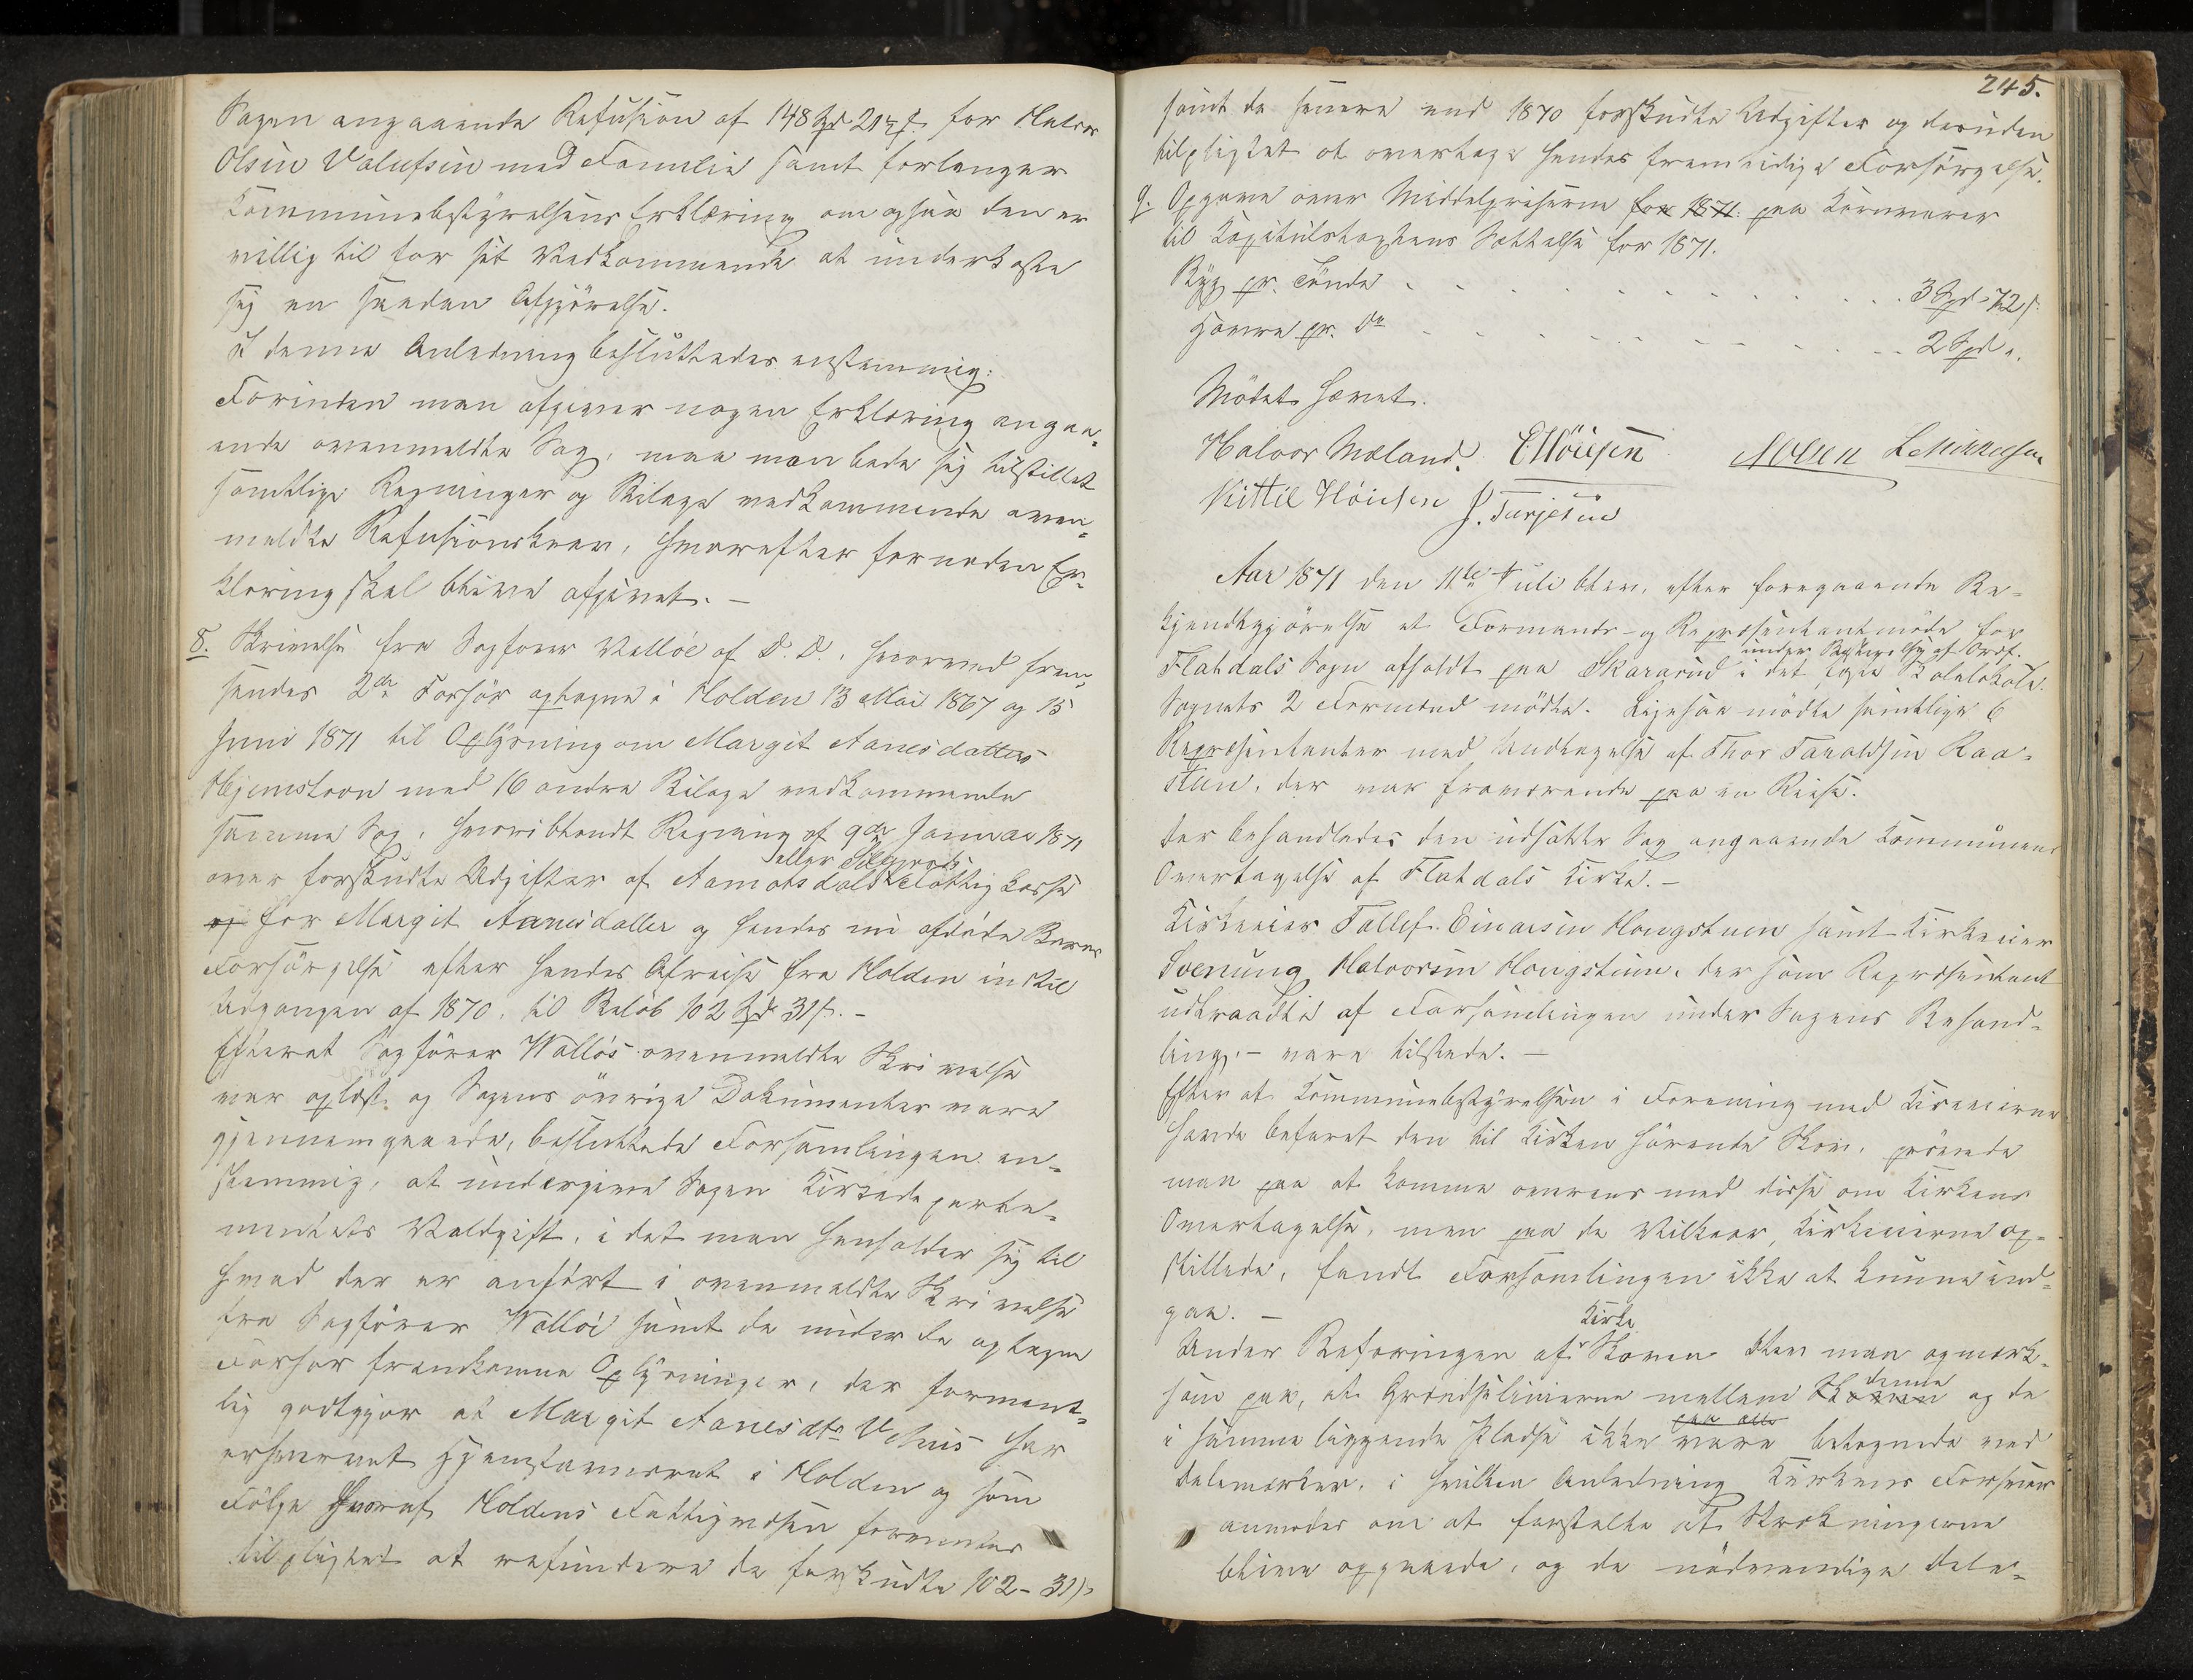 Sagen angaaende Refusion af 148 Spd 21½ s. for Halvor
Olsen Valufsin med Familie samt forlanger
Kommunebestyrelsens Erklæring om ogsaa den er
villig til for sit Vedkommende at underkaste
sig en saadan Afgjörelse.
I denne Anledning besluttedes enstemmig:
Forinden man afgiver nogen Erklæring angaa-
ende ovenmeldte Sag, maa man bede sig tilstillet
samtlige Regninger og Bilage vedkommende oven-
meldte Refusionskrav, hvorefter fornöden Er-
klæring skal blive afgivet. –
8. Skrivelse fra Sagförer Wallöe af D. D., hvorved frem-
sendes 2de Forhör optagne i Holden 13 Mai 1867 og 15
Juni 1871 til Oplysning om Margit Aanesdatters
Hjemstavn med 16 andre Bilage vedkommende
samme Sag, hvoriblandt Regning af 9de Januar 1871
eller Silgjords
over forskudte Udgifter af Aamotsdals Fattigkasse
og for Margit Aanesdatter og hendes nu afdöde Barns
Forsörgelse efter hendes Afreise fra Holden indtil
Udgangen af 1870, til Belöb 102 Spd 31 s. –
Efterat Sagförer Wallöes ovenmeldte Skrivelse
var oplæst og Sagens övrige Dokumenter vare
gjennemgaaede, besluttede Forsamlingen en-
stemmig, at undergive Sagen Kirkedeparte-
mentets Voldgift, i det man henholder sig til
hvad der er anfört i ovenmeldte Skrivelse
fra Sagförer Wallöe samt de under de optagne
Forhör fremkomne Oplysninger, der forment-
lig godtgjör at Margit Aanesdtr har
erhvervet Hjemstavnsret i Holden og som
Fölge hvoraf Holdens Fattigvæsen formentes
tilpligtet at refundere de forskudte 102 – 31 s
245.
samt de senere end 1870 forskudte Udgifter og desuden
tilpligtet at overtage hendes fremtidige Forsörgelse.
9. Opgave over Middelpriserne for 1871. paa Kornvarer
til Kapitelstaxtens Sættelse for 1871.
Byg pr. Tönde . . . . . . . . . . . 3 Spd 72 s.
Havre pr. Do . . . . . . . . . . . 2 Spd „.
Mödet hævet.
Halvor Mæland. E Höiesen AOlsen
Kittil Höiesen J. Turjesen
Aar 1871 den 11te Juli blev, efter foregaaende Be-
kjendtgjörelse et Formands- og Repræsentantmöde for
under Bestyrelse af Ordf.
Flatdals Sogn afholdt paa Skararud i det faste Skolelokale.
Sognets 2 Formænd mödte. Ligesaa mödte samtlige 6
Repræsentanter med Undtagelse af Thor Taraldsen Raa-
stuen, der var fraværende paa en Reise.
Der behandledes den udsatte Sag angaaende Kommunens
Overtagelse af Flatdals Kirke. –
Kirkeeier Tallef Einarsen Haugstuen samt Kirkeeier
Svenung Halvorsen Haugstuen, der som Repræsentant
udtraadte af Forsamlingen under Sagens Behand-
ling, – vare tilstede. –
Efter at Kommunebestyrelsen i Forening med Kirkeeierne
havde befaret den til Kirken hörende Skov, prövede
man paa at komme overens med disse om Kirkens
Overtagelse, men paa de Vilkaar, Kirkeeierne op-
stillede, fandt Forsamlingen ikke at kunne ind-
gaa. –
Kirke
Under Befaringen af Skoven blev man opmærk-
denne
som paa, at Grændselinierne mellem Skoven og de
paa alle
i samme liggende Pladse ikke vare betegnede med
Delemærker, i hvilken Anledning Kirkens Forsvar
anmodes om at forstalte at Strækningerne
blive opgaaede, og de nödvendige Dele-